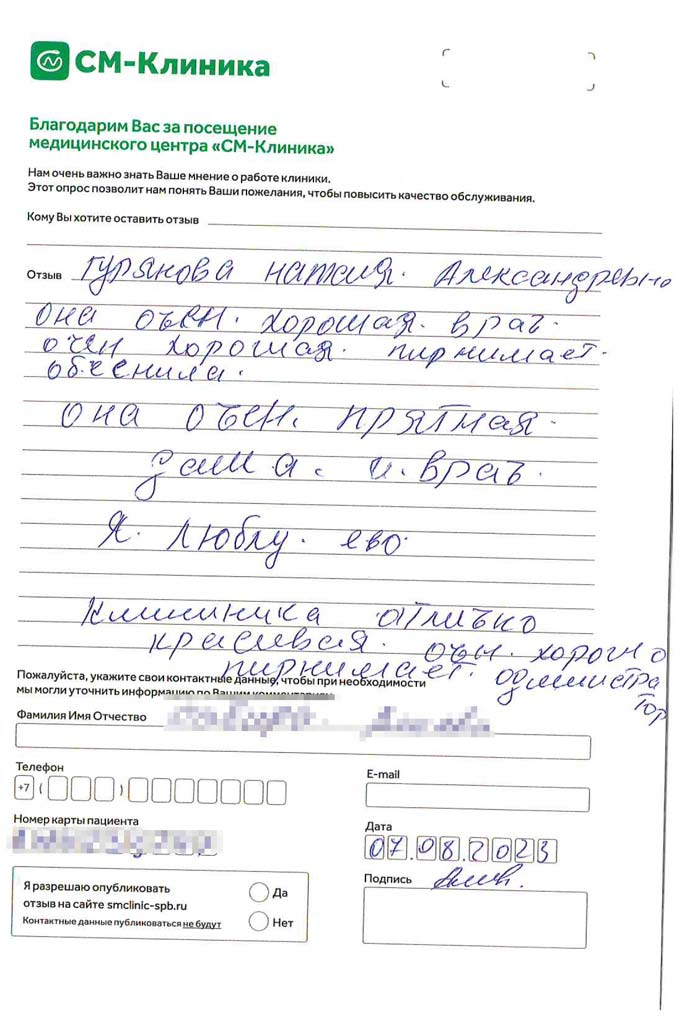 СМ-Клиника
Благодарим Вас за посещение
медицинского центра «СМ-Клиника»
Нам очень важно знать Ваше мнение о работе клиники.
Этот опрос позволит нам понять Ваши пожелания, чтобы повысить качество обслуживания.
Кому Вы хотите оставить отзыв
Отзыв Гурянова наталя. Александревно
она очен. хорошая. врач.
очен хорошая. пирнимает.
обеснила.
она очен. прятная.
дама. и. врач.
Я. люблу. ево.
Клииника атлично
красивая. очн. хорошо
пирнимает. одминистра
тор
Пожалуйста, укажите свои контактные данные, чтобы при необходимости
мы могли уточнить информацию по Вашим комментариям
Фамилия Имя Отчество
Телефон
+7 ( )
E-mail
Номер карты пациента
Дата
07.08.2023
Подпись
Я разрешаю опубликовать
отзыв на сайте smclinic-spb.ru
Контактные данные публиковаться не будут
Да
Нет